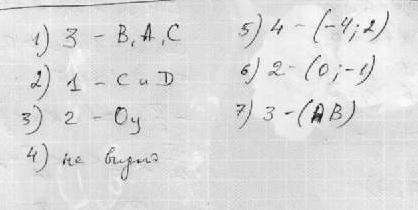 1) 3 - В, А, С
2) 1 - С и D
3) 2 - Оу
4) не видно
5) 4 - (-4; 2)
6) 2 - (0; -1)
7) 3 - (АВ)